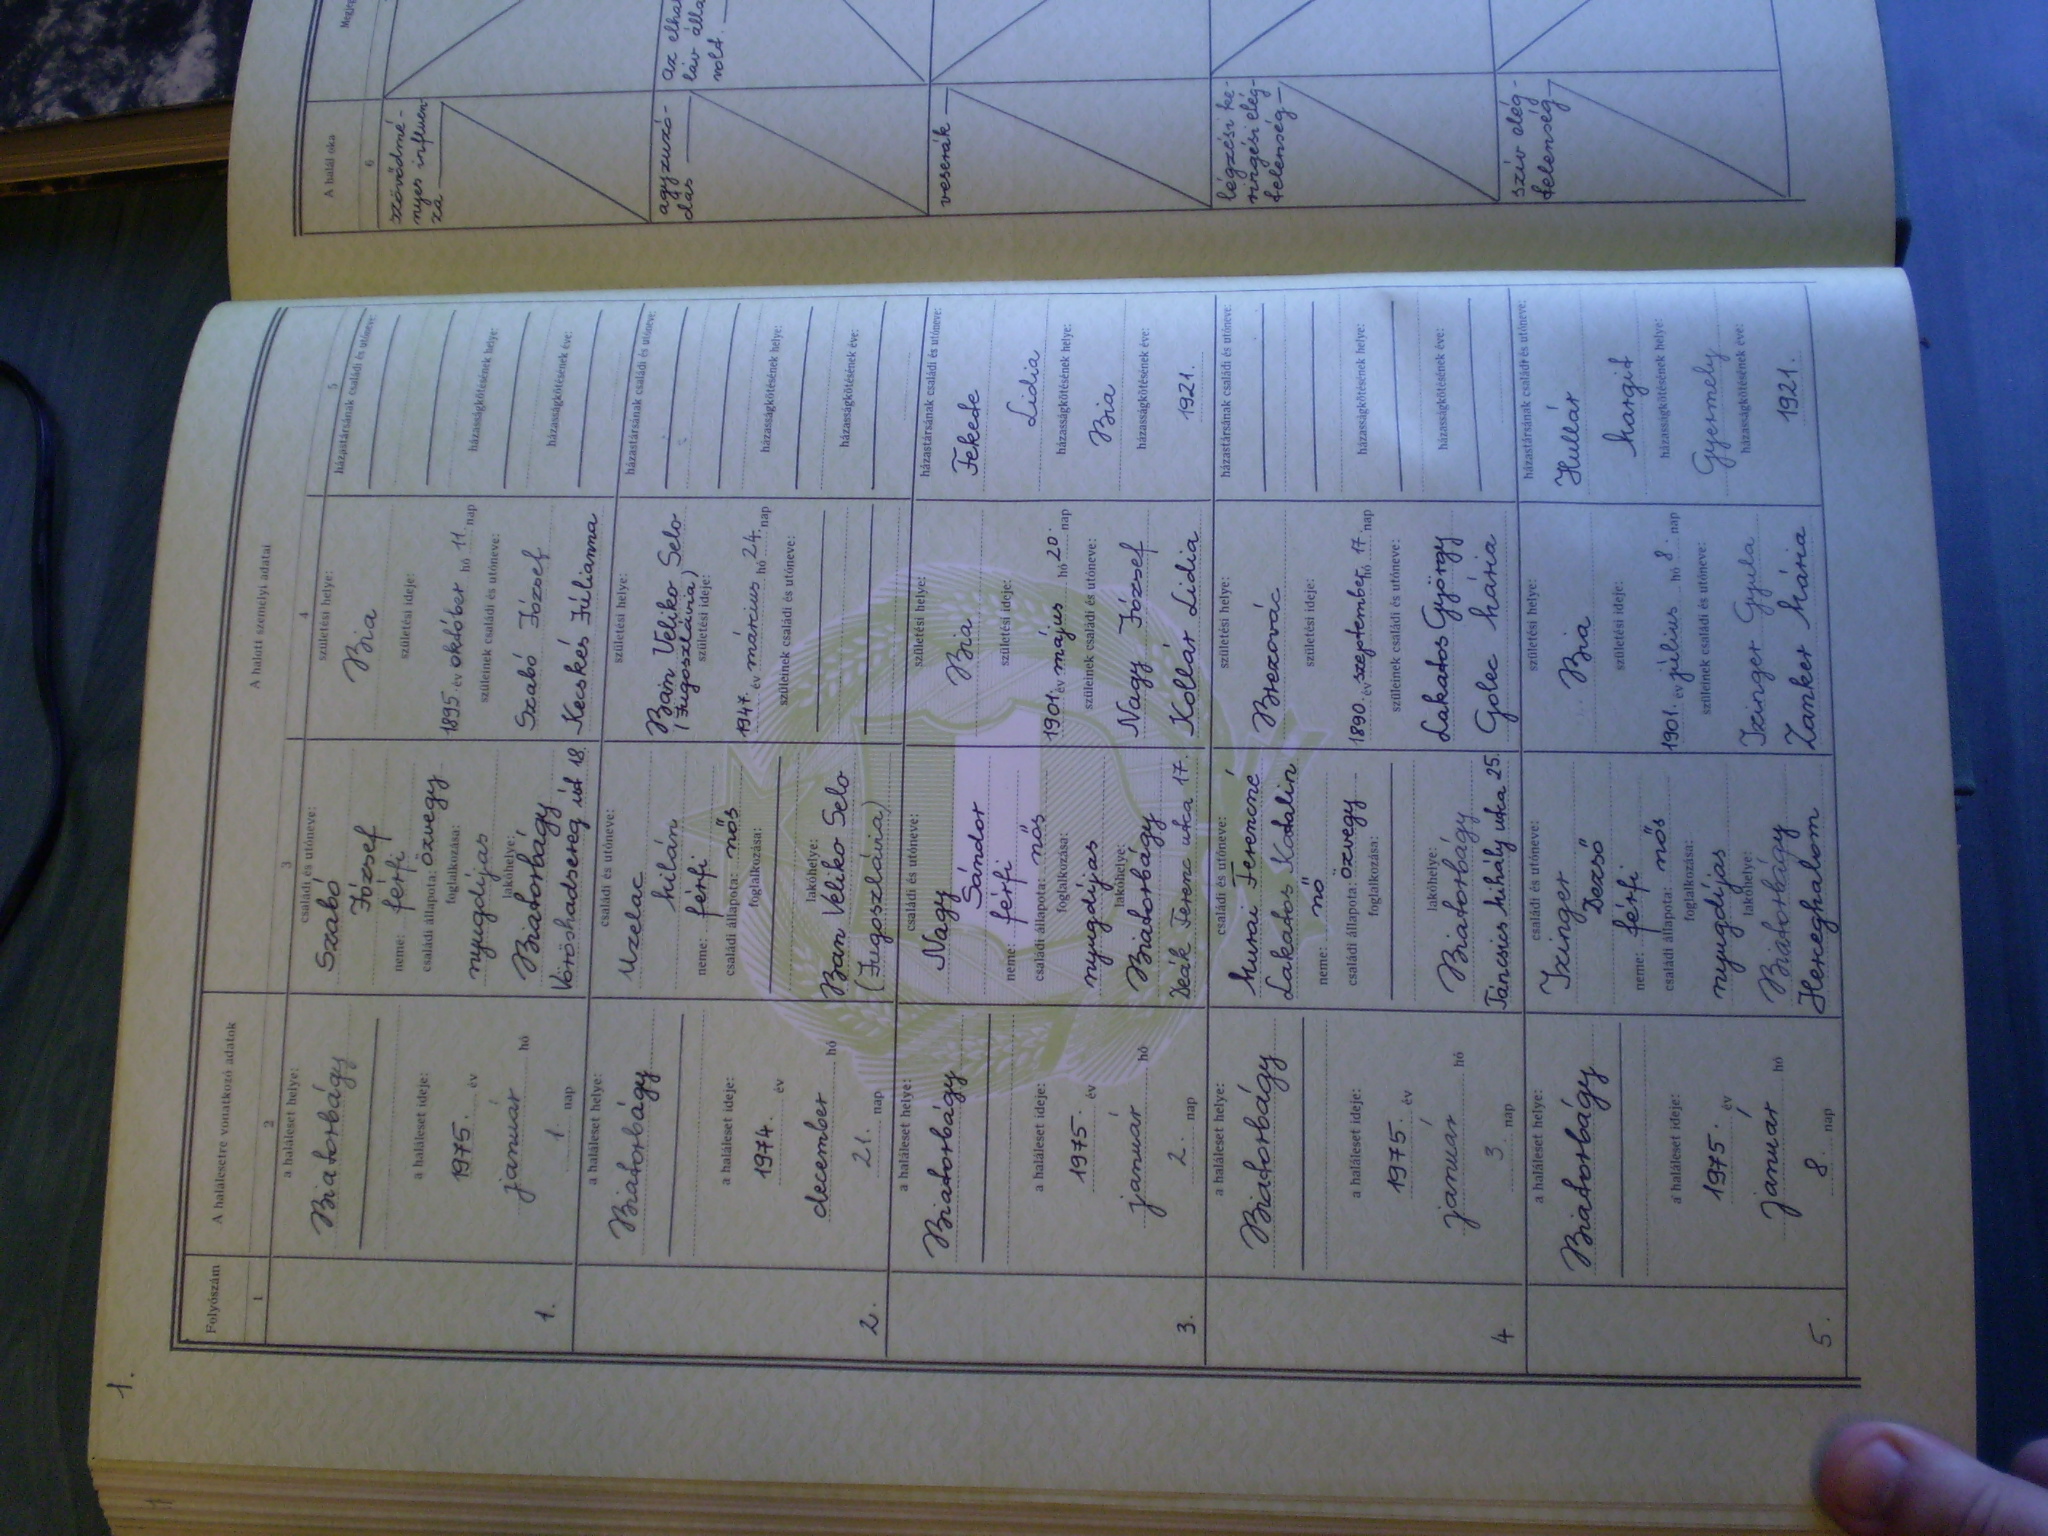 1.
Folyószám
A halálesetre vonatkozó adatok
A halott személyi adatai
1
2
3
4
5
1.
a haláleset helye:
Biatorbágy
a haláleset ideje:
1975. év
január hó
1. nap
családi és utóneve:
Szabó
József
neme: férfi
családi állapota: özvegy
foglalkozása:
nyugdíjas
lakóhelye:
Biatorbágy
Vöröshadsereg út 18.
születési helye:
Bia
születési ideje:
1895. év október hó 11. nap
szüleinek családi és utóneve:
Szabó József
Kecskés Júlianna
házastársának családi és utóneve:
házasságkötésének helye:
házasságkötésének éve:
2.
a haláleset helye:
Biatorbágy
a haláleset ideje:
1974. év
december hó
21. nap
családi és utóneve:
Uzelac
Milán
neme: férfi
családi állapota: nős
foglalkozása:
lakóhelye:
Ban Veliko Selo
(Jugoszlávia)
születési helye:
Ban Veliko Selo
(Jugoszlávia)
születési ideje:
1947. év március hó 24. nap
szüleinek családi és utóneve:
házastársának családi és utóneve:
házasságkötésének helye:
házasságkötésének éve:
3.
a haláleset helye:
Biatorbágy
a haláleset ideje:
1975. év
január hó
2. nap
családi és utóneve:
Nagy
Sándor
neme: férfi
családi állapota: nős
foglalkozása:
nyugdíjas
lakóhelye:
Biatorbágy
Deák Ferenc utca 17.
születési helye:
Bia
születési ideje:
1901. év május hó 20. nap
szüleinek családi és utóneve:
Nagy József
Kollár Lidia
házastársának családi és utóneve:
Fekete
Lidia
házasságkötésének helye:
Bia
házasságkötésének éve:
1921.
4
a haláleset helye:
Biatorbágy
a haláleset ideje:
1975. év
január hó
3. nap
családi és utóneve:
Murai Ferencné
Lakatos Katalin
neme: nő
családi állapota: özvegy
foglalkozása:
lakóhelye:
Biatorbágy
Táncsics Mihály utca 25.
születési helye:
Brezovác
születési ideje:
1890. év szeptember hó 17. nap
szüleinek családi és utóneve:
Lakatos György
Golec Mária
házastársának családi és utóneve:
házasságkötésének helye:
házasságkötésének éve:
5.
a haláleset helye:
Biatorbágy
a haláleset ideje:
1975. év
január hó
8. nap
családi és utóneve:
Izinger
Dezső
neme: férfi
családi állapota: nős
foglalkozása:
nyugdíjas
lakóhelye:
Biatorbágy
Herceghalom
születési helye:
Bia
születési ideje:
1901. év július hó 8. nap
szüleinek családi és utóneve:
Izinger Gyula
Zanker Mária
házastársának családi és utóneve:
Hullár
Margit
házasságkötésének helye:
Gyermely
házasságkötésének éve:
1921.
A halál oka
6
szövődmé-
nyes influen-
za
agyzúzó-
dás
az elha
láv álla
volt.
veserák
légzési ke-
ringési elég-
telenség
szív elég-
telenség